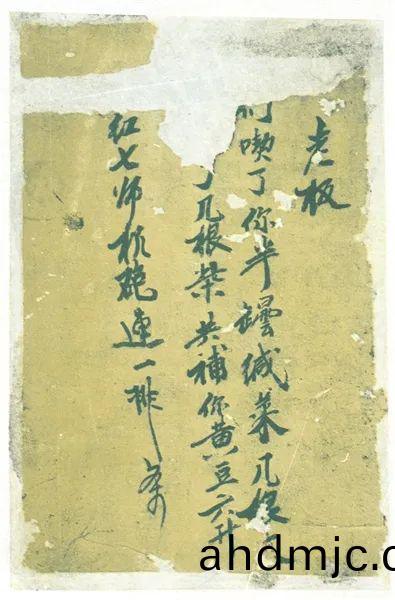 老板
们喫了你半罎咸菜几根
了几根柴共补你黄豆六升
红七师机炮连一排 条
ahdmjc.c